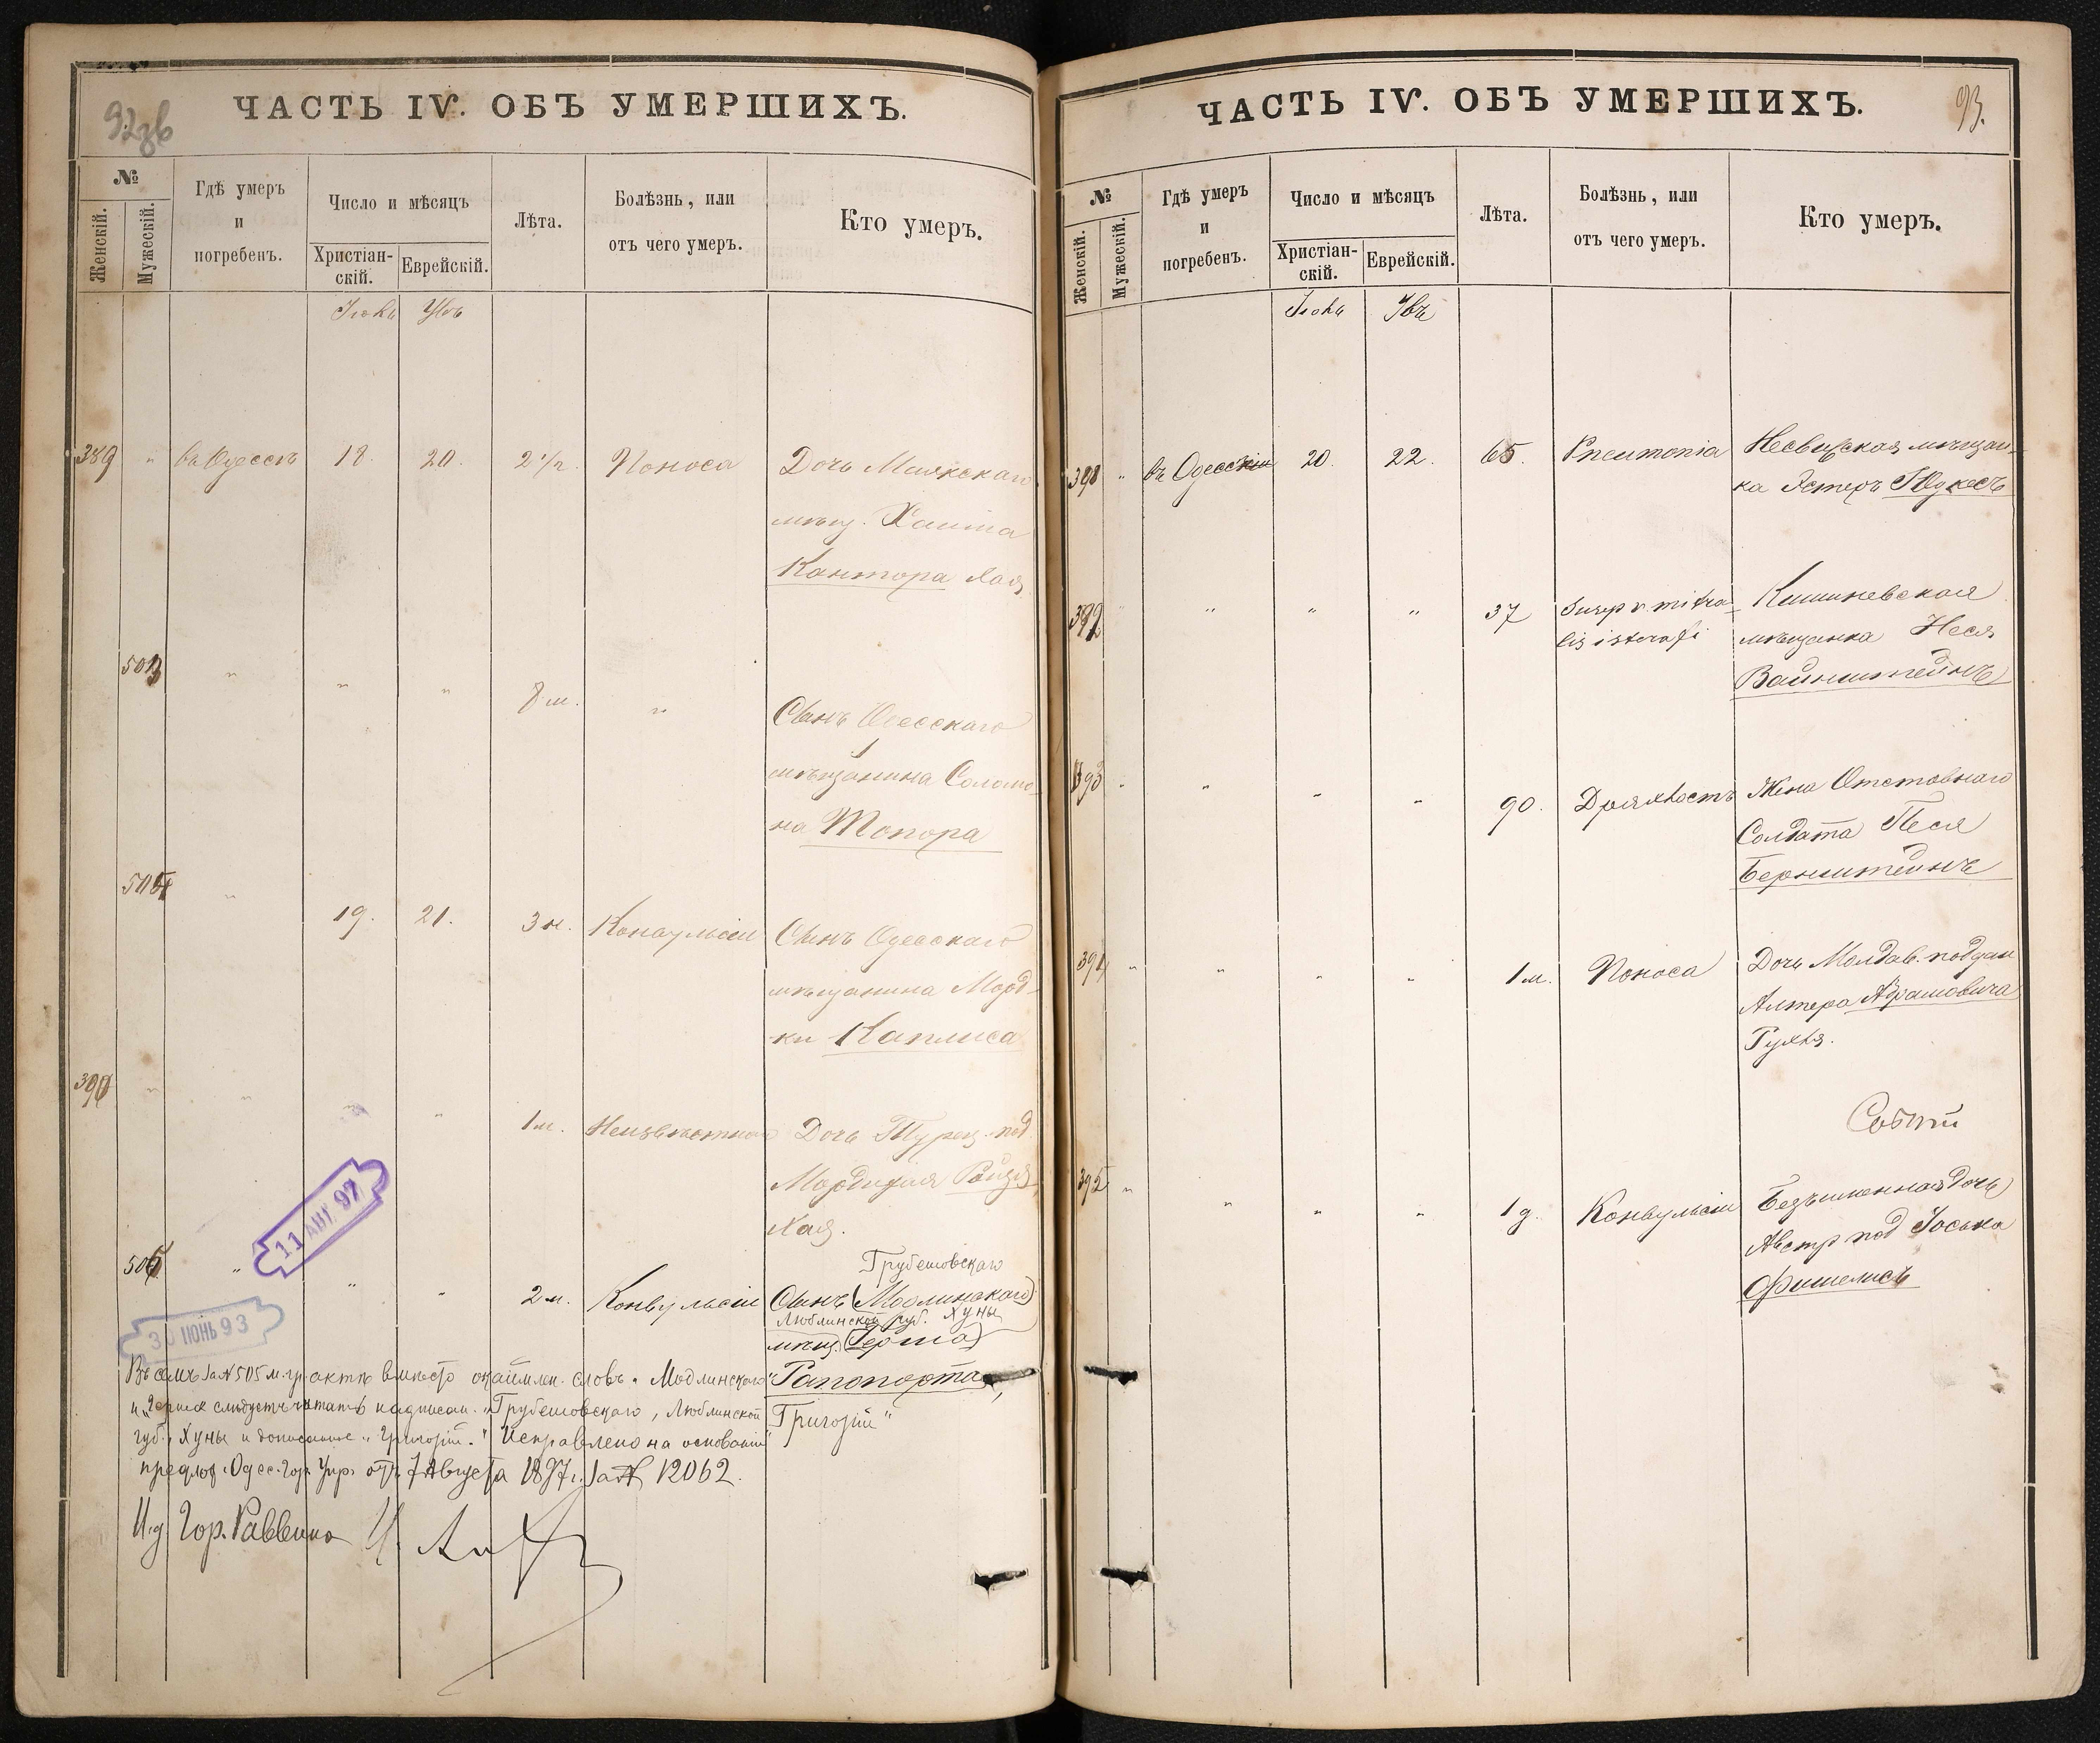 92 об
ЧАСТЬ IV. ОБЪ УМЕРШИХЪ.
№
Женскій.
Мужескій.
Гдѣ умеръ
и
погребенъ.
Число и мѣсяцъ
Христіан-
скій.
Еврейскій.
Лѣта.
Болѣзнь, или
отъ чего умеръ.
Кто умеръ.
389 " въ Одессѣ 18. 20. 2 1/2. Поноса Дочь Маякскаго
мѣщ. Хаима
Кантора Хая
503 " " " 8 м. "
Сынъ Одесскаго
мѣщанина Соломо-
на Топора
504 " 19. 21. 3 н. Конвульсіи Сынъ Одесскаго
мѣщанина Морд-
ки Каплиса
390 " " " " 1 м. Неизвѣстная Дочь Турец. под
Мордихая
Хая.
11 АВГ 97
Грубешовскаго
505 " " " 2 м. Конвульсіи Сынъ (Модлинскаго)
Люблинской губ. Хуны
мѣщ. (Герша)
30 ІЮНЬ 93
Рапопорта,
Григорій"
Въ семъ за № 505 м. гр. актѣ вмѣсто окаймлен. словъ "Модлинскаго"
и "Герша" слѣдуетъ читать надписан. "Грубешовскаго, Люблинской
губ., Хуны и дописанное "Григорій." Исправлено на основаніи
предлож. Одес. Гор. Упр. отъ 7 Августа 1897 г. за № 12062.
И. д. Гор. Раввина
93.
ЧАСТЬ IV. ОБЪ УМЕРШИХЪ.
№
Женскій.
Мужескій.
Гдѣ умеръ
и
погребенъ.
Число и мѣсяцъ
Христіан-
скій.
Еврейскій.
Лѣта.
Болѣзнь, или
отъ чего умеръ.
Кто умеръ.
391 " въ Одессѣ 20. 22. 65. Pneumonia Несвижская мѣщан-
ка Эстеръ
392 " " " " 37 Кишиневская
мѣщанка Неся
Вайнштейнъ
393 " " " " 90. Дряхлость Жена Отставнаго
Солдата Песя
Бернштейнъ
394 " " " " 1 м. Поноса Дочь Молдав. поддан
Алтера Абрамовича
Рухля.
395 " " " " 1 д. Конвульсіи Безъименная дочь
Австр под Іоська
Фишелисъ